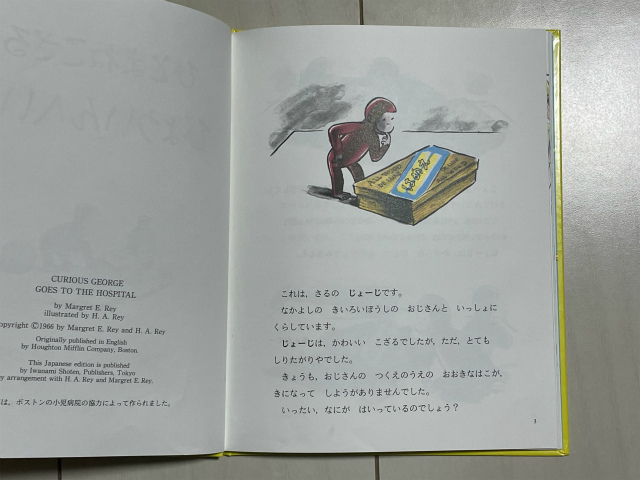 CURIOUS GEORGE
GOES TO THE HOSPITAL
by Margret E. Rey
illustrated by H. A. Rey
opyright ©1966 by Margret E. Rey and H. A. Rey
Originally published in English
by Houghton Mifflin Company, Boston.
This Japanese edition is published
by Iwanami Shoten, Publishers, Tokyo
y arrangement with H. A. Rey and Margret E. Rey.
は，ボストンの小児病院の協力によって作られました。
これは，さるの　じょーじです。
なかよしの　きいろいぼうしの　おじさんと　いっしょに
くらしています。
じょーじは，かわいい　こざるでしたが，ただ，とても
しりたがりやでした。
きょうも，おじさんの　つくえのうえの　おおきなはこが，
きになって　しようがありませんでした。
いったい，なにが　はいっているのでしょう？
3